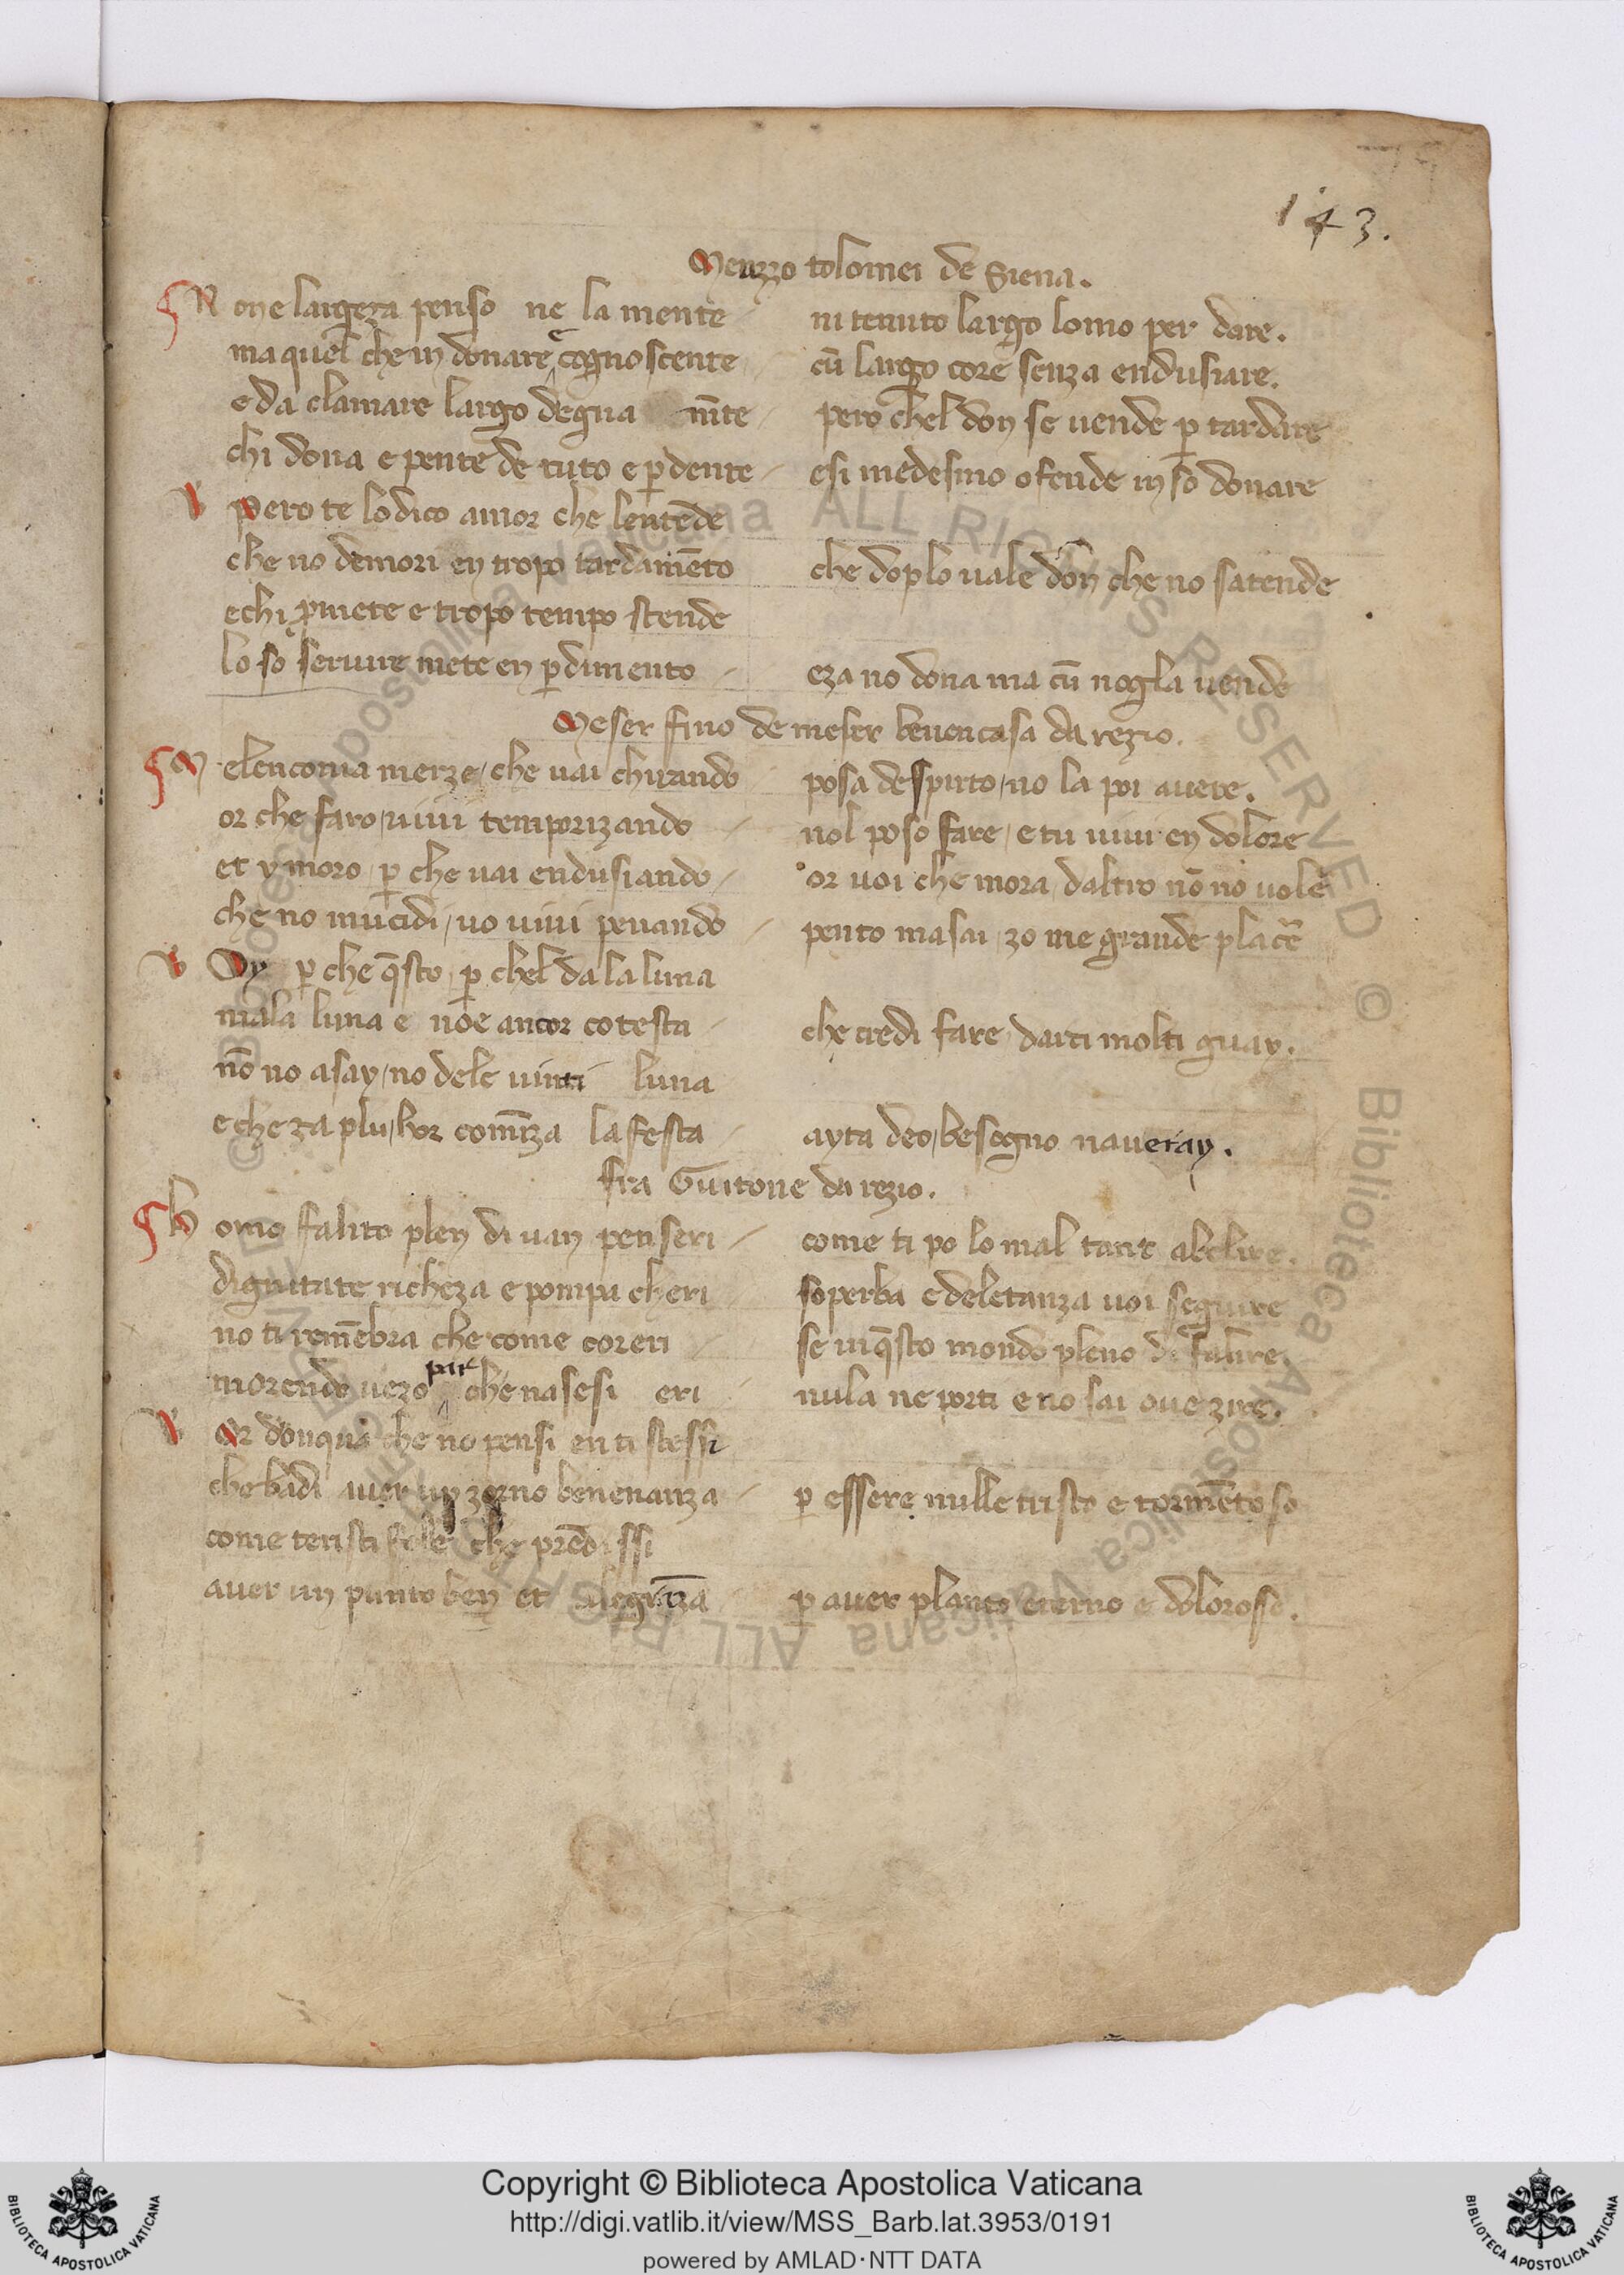 143.
Meuzzo tolomei de Siena.
None largeza penso ne la mente ni tenuto largo lomo per dare.
ma quel che in donare e cognoscente cũ largo core senza endusiare.
e da clamare largo degna mẽte pero chel don se uende p tardare
chi dona e pente de tuto e pdente esi medesmo ofende in so donare
Pero te lo dico amor che lentẽde
che no demori en tropo tardamẽto che doplo uale don che no satende
echi pmete e tropo tempo stende
lo so seruire mete en pdimento eza no dona ma cũ nogla uende
Meser fino de meser beuencasa da rezio.
Melenconia merze, che uai chirando posa despirto, no la poi auere.
or che faro, uiui temporizando nol poso fare, e tu uiui en dolore
et y moro, p che uai endusiando or uoi che mora, daltro nõ no uolẽ
che no mucidi, uo uiui penando pento masai, zo me grande placẽ
Oy p che q̃sto, p chel da la luna
mala luna e noe ancor cotesta che credi fare, darti molti guay.
nõ no asay, no dele uinti luna
e che za plu, hor comẽza la festa ayta deo, besogno naueray.
fra Guitone da rezio.
Homo falito plen di uan penseri come ti po lo mal tant abelire.
dignitate richeza e pompa cheri soperba e deletanza uoi seguire
no ti remẽbra che come coreri se in q̃sto mondo pleno di falire.
morendo uezo pur che nasesi eri nula ne porti e no sai oue zire.
Or donqua che no pensi en ti stessi
che badi auer un zorno benenanza p essere mille tristo e tormẽtoso
come teristi fole che prẽdissi
auer un punto ben et alegrãza p auer planto eterno e dolorosso.
Copyright © Biblioteca Apostolica Vaticana
http://digi.vatlib.it/view/MSS_Barb.lat.3953/0191
powered by AMLAD·NTT DATA
BIBLIOTECA APOSTOLICA VATICANA
BIBLIOTECA APOSTOLICA VATICANA